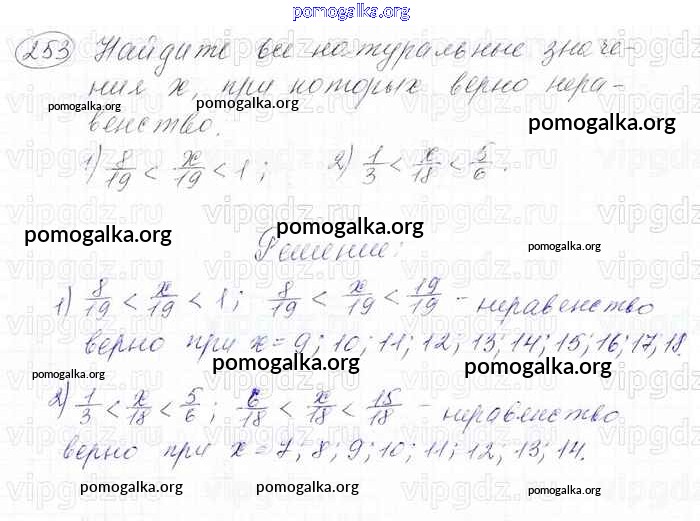 pomogalka.org
253 Найдите все натуральные значе-
ния x, при которых верно нера-
pomogalka.org pomogalka.org
венство. pomogalka.org
1) 8/19 < x/19 < 1; 2) 1/3 < x/18 < 5/6.
vipgdz.ru vipgdz.ru vipgdz.ru
pomogalka.org pomogalka.org pomogalka.org
Решение:
1) 8/19 < x/19 < 1; 8/19 < x/19 < 19/19 - неравенство
верно при x = 9; 10; 11; 12; 13; 14; 15; 16; 17; 18.
pomogalka.org pomogalka.org pomogalka.org
2) 1/3 < x/18 < 5/6; 6/18 < x/18 < 15/18 - неравенство
верно при x = 7, 8; 9; 10; 11; 12; 13; 14.
pomogalka.org pomogalka.org pomogalka.org